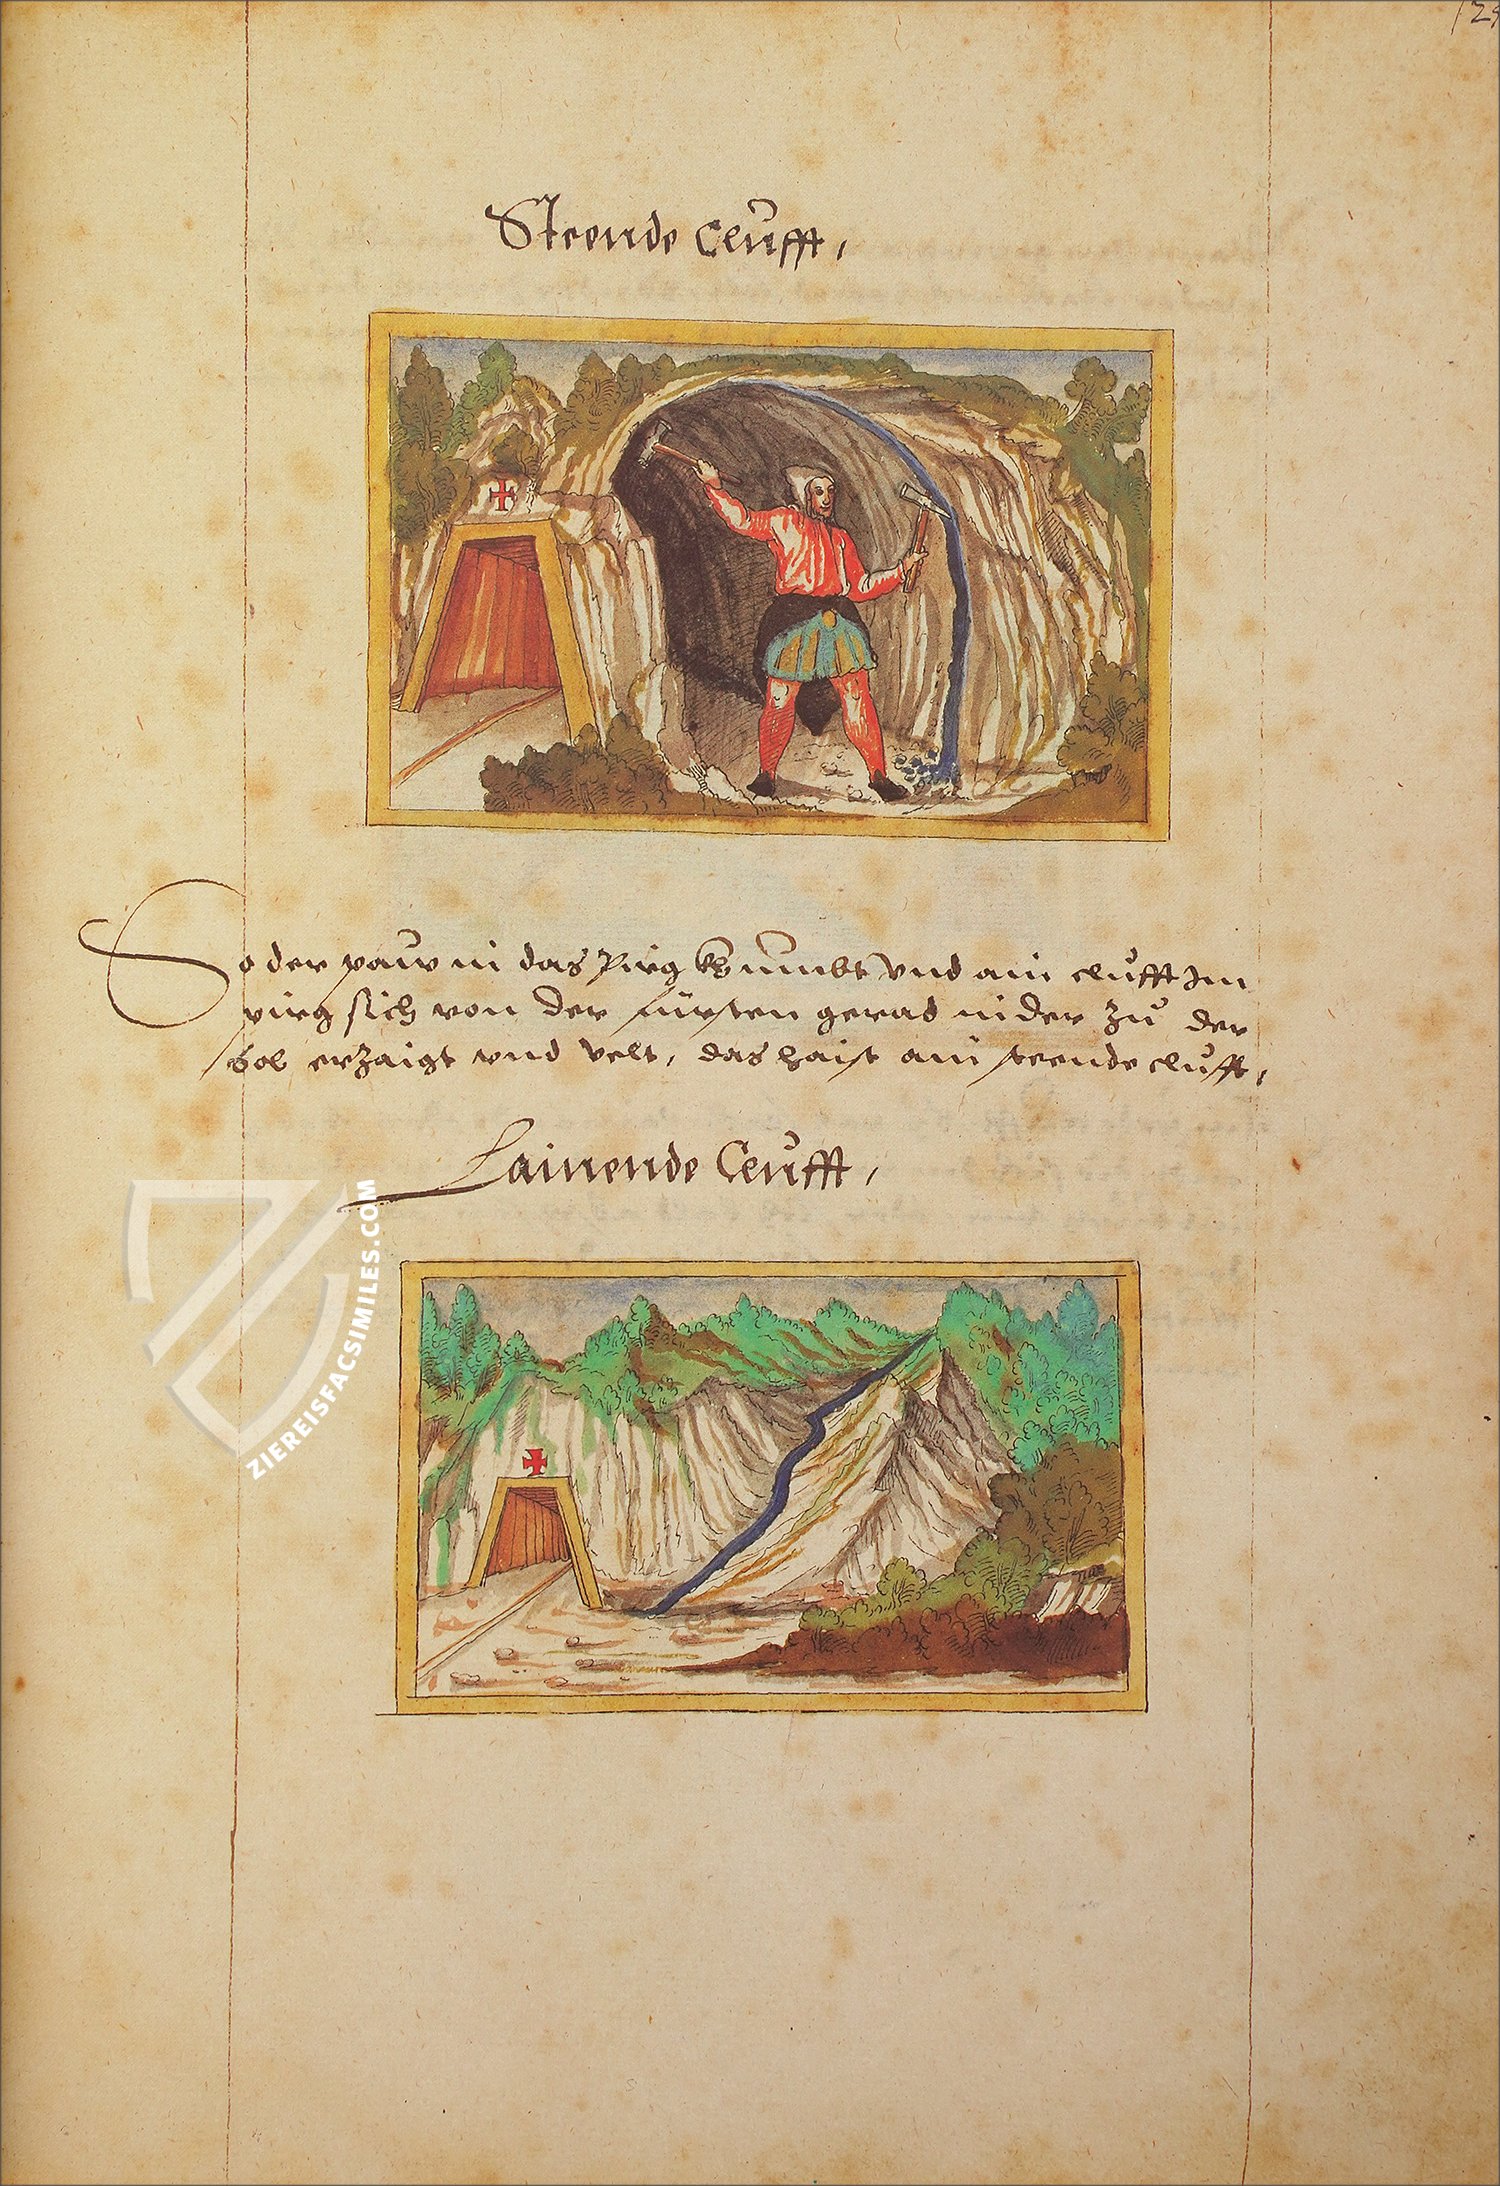 129
Steende Clufft,
So der paw in das Pirg khumbt vnd ain clufft Im
pirg sich von der fürsten gerad nider zu der
Sol erzaigt vnd velt, das haist ain steende clufft,
Lainende Clufft,
ZIEREISFACSIMILES.COM